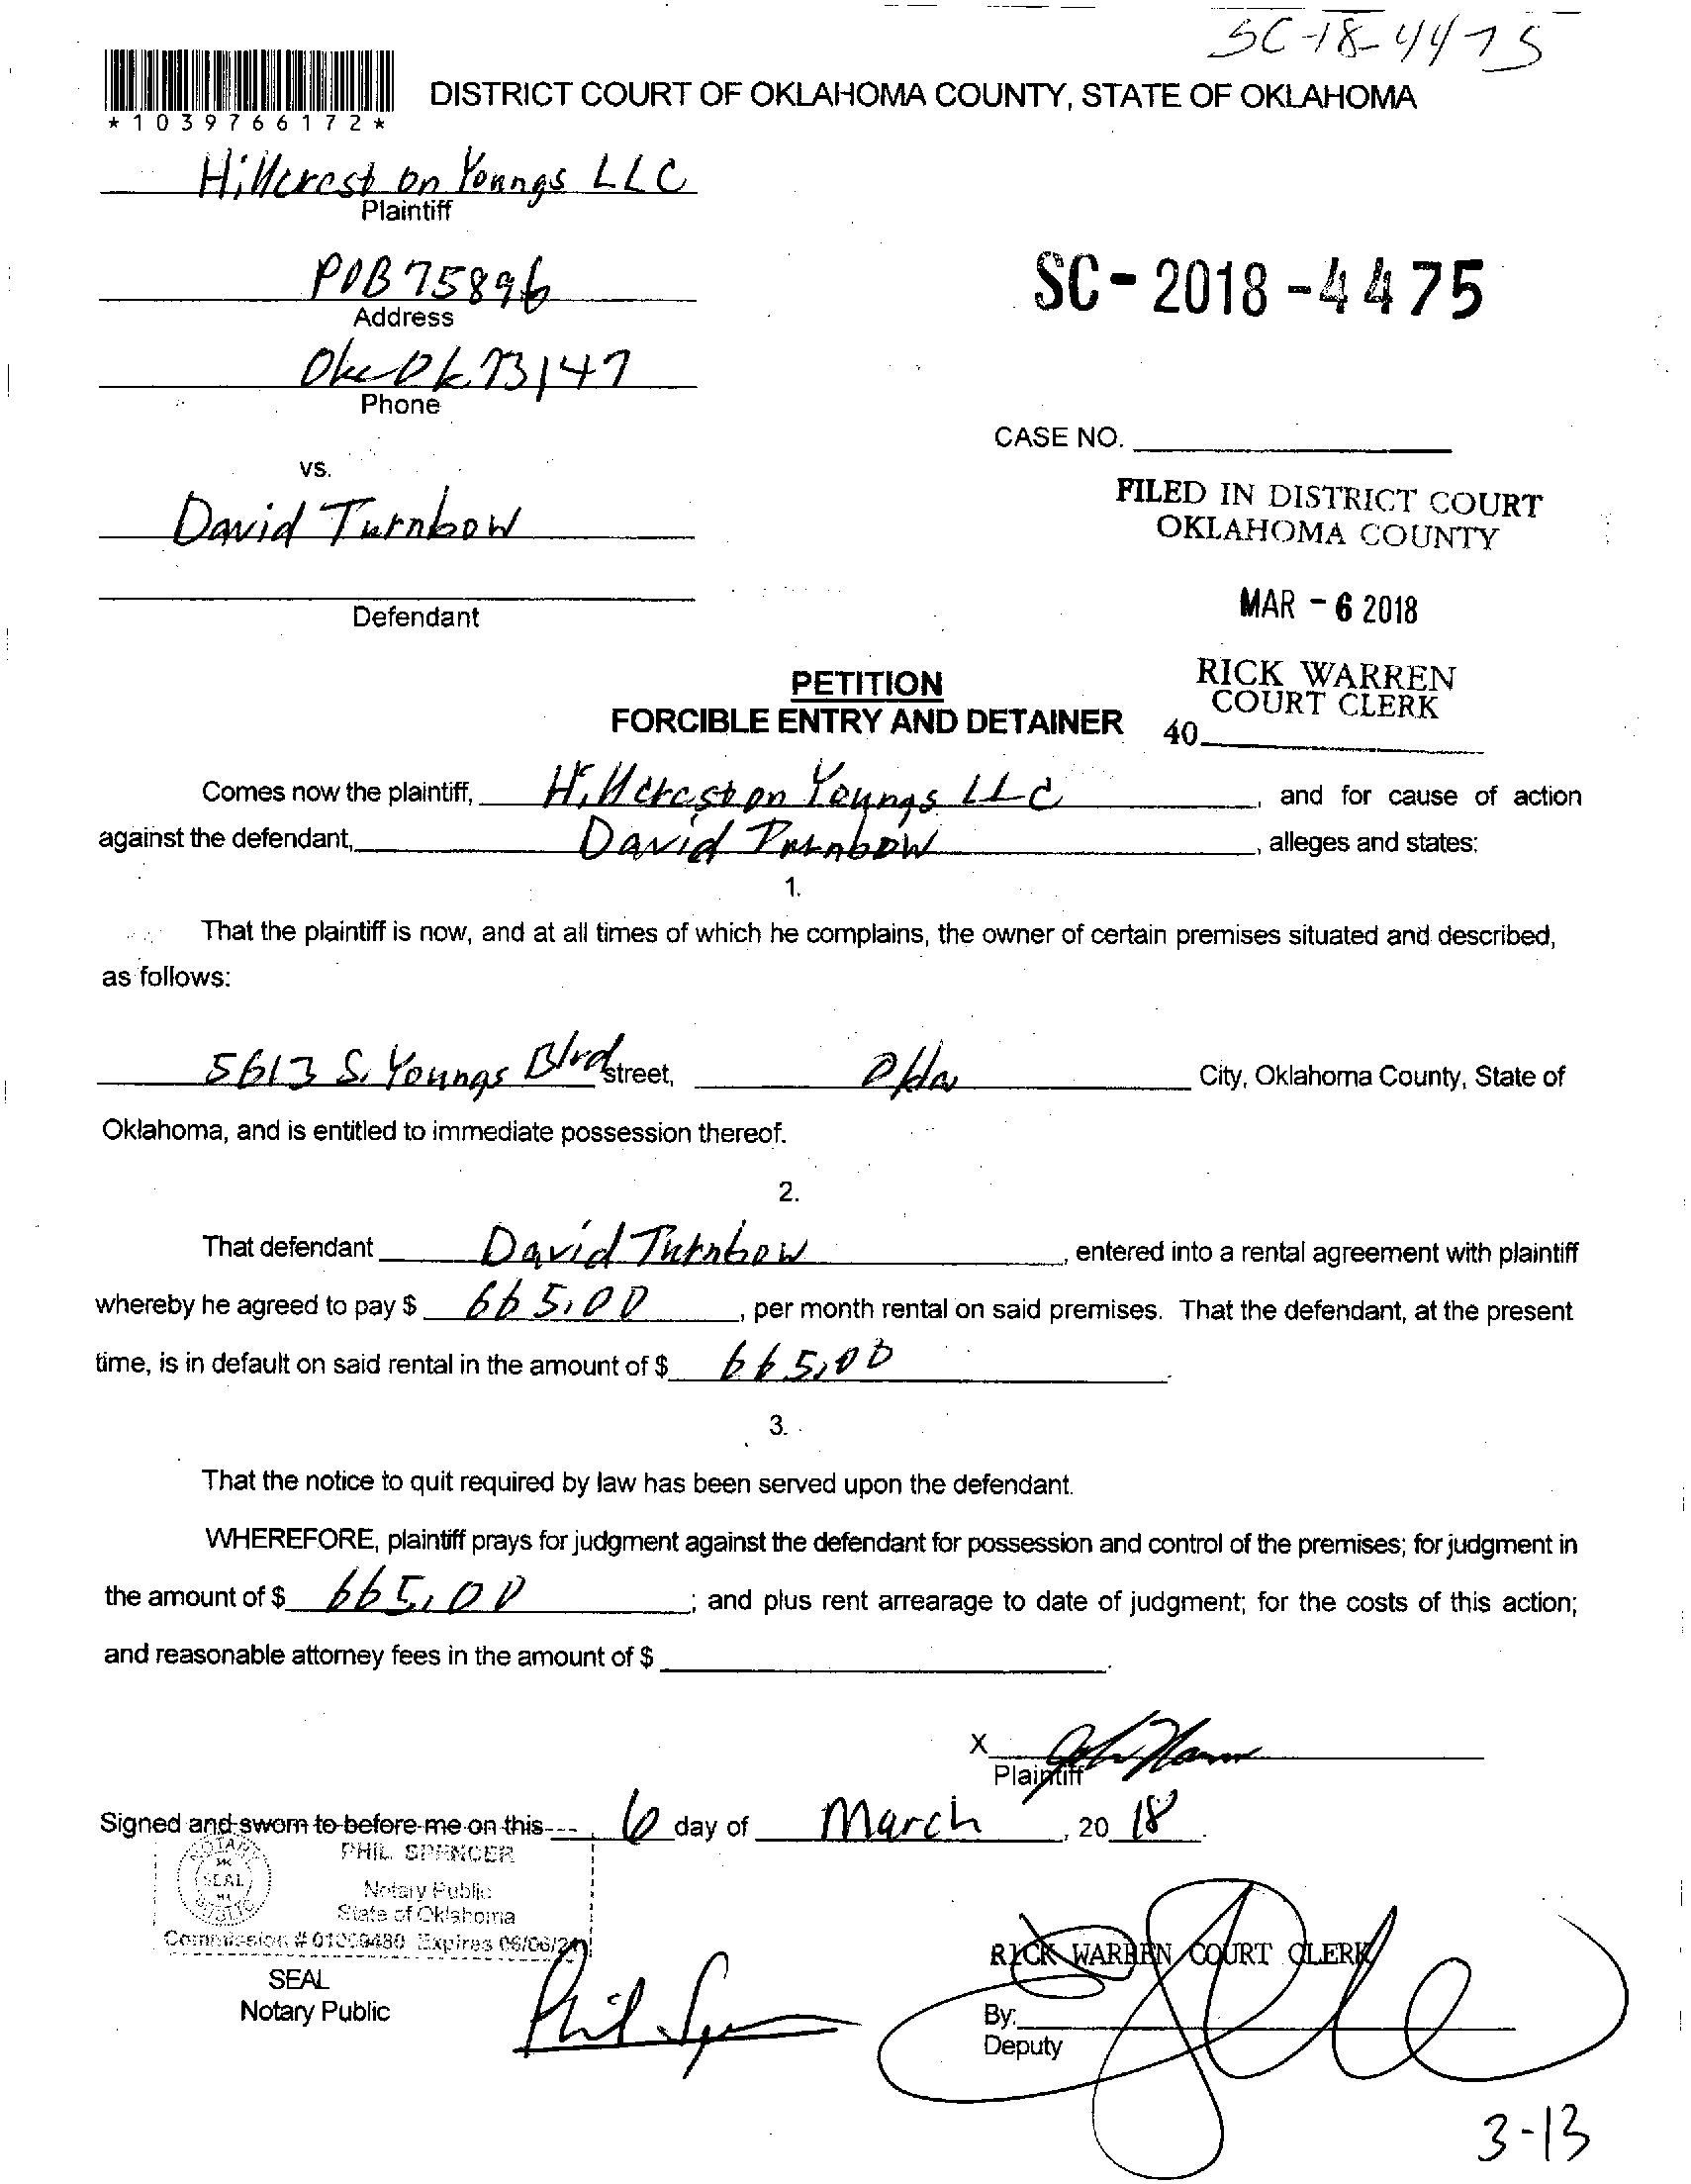 SC-18-4475
*1039766172*
DISTRICT COURT OF OKLAHOMA COUNTY, STATE OF OKLAHOMA
Hillcrest on Youngs LLC
Plaintiff
POB 75896
Address
SC-2018-4475
Okc Ok 73147
Phone
CASE NO.
vs.
David Turnbow
FILED IN DISTRICT COURT
OKLAHOMA COUNTY
Defendant
MAR - 6 2018
PETITION
RICK WARREN
COURT CLERK
FORCIBLE ENTRY AND DETAINER
40
Comes now the plaintiff, Hillcrest on Youngs LLC, and for cause of action
against the defendant, David Turnbow, alleges and states:
1.
That the plaintiff is now, and at all times of which he complains, the owner of certain premises situated and described,
as follows:
5613 S. Youngs Blvd street, Okla City, Oklahoma County, State of
Oklahoma, and is entitled to immediate possession thereof.
2.
That defendant David Turnbow, entered into a rental agreement with plaintiff
whereby he agreed to pay $ 665.00, per month rental on said premises. That the defendant, at the present
time, is in default on said rental in the amount of $ 665.00.
3.
That the notice to quit required by law has been served upon the defendant.
WHEREFORE, plaintiff prays for judgment against the defendant for possession and control of the premises; for judgment in
the amount of $ 665.00; and plus rent arrearage to date of judgment; for the costs of this action;
and reasonable attorney fees in the amount of $ .
X
Plaintiff
Signed and sworn to before me on this 6 day of March, 20 18.
PHIL SPENCER
NOTARY
SEAL
PUBLIC
Notary Public
State of Oklahoma
Commission # 01009480 Expires 06/06/21
SEAL
Notary Public
Phil Spencer
RICK WARREN COURT CLERK
By:
Deputy
3-13